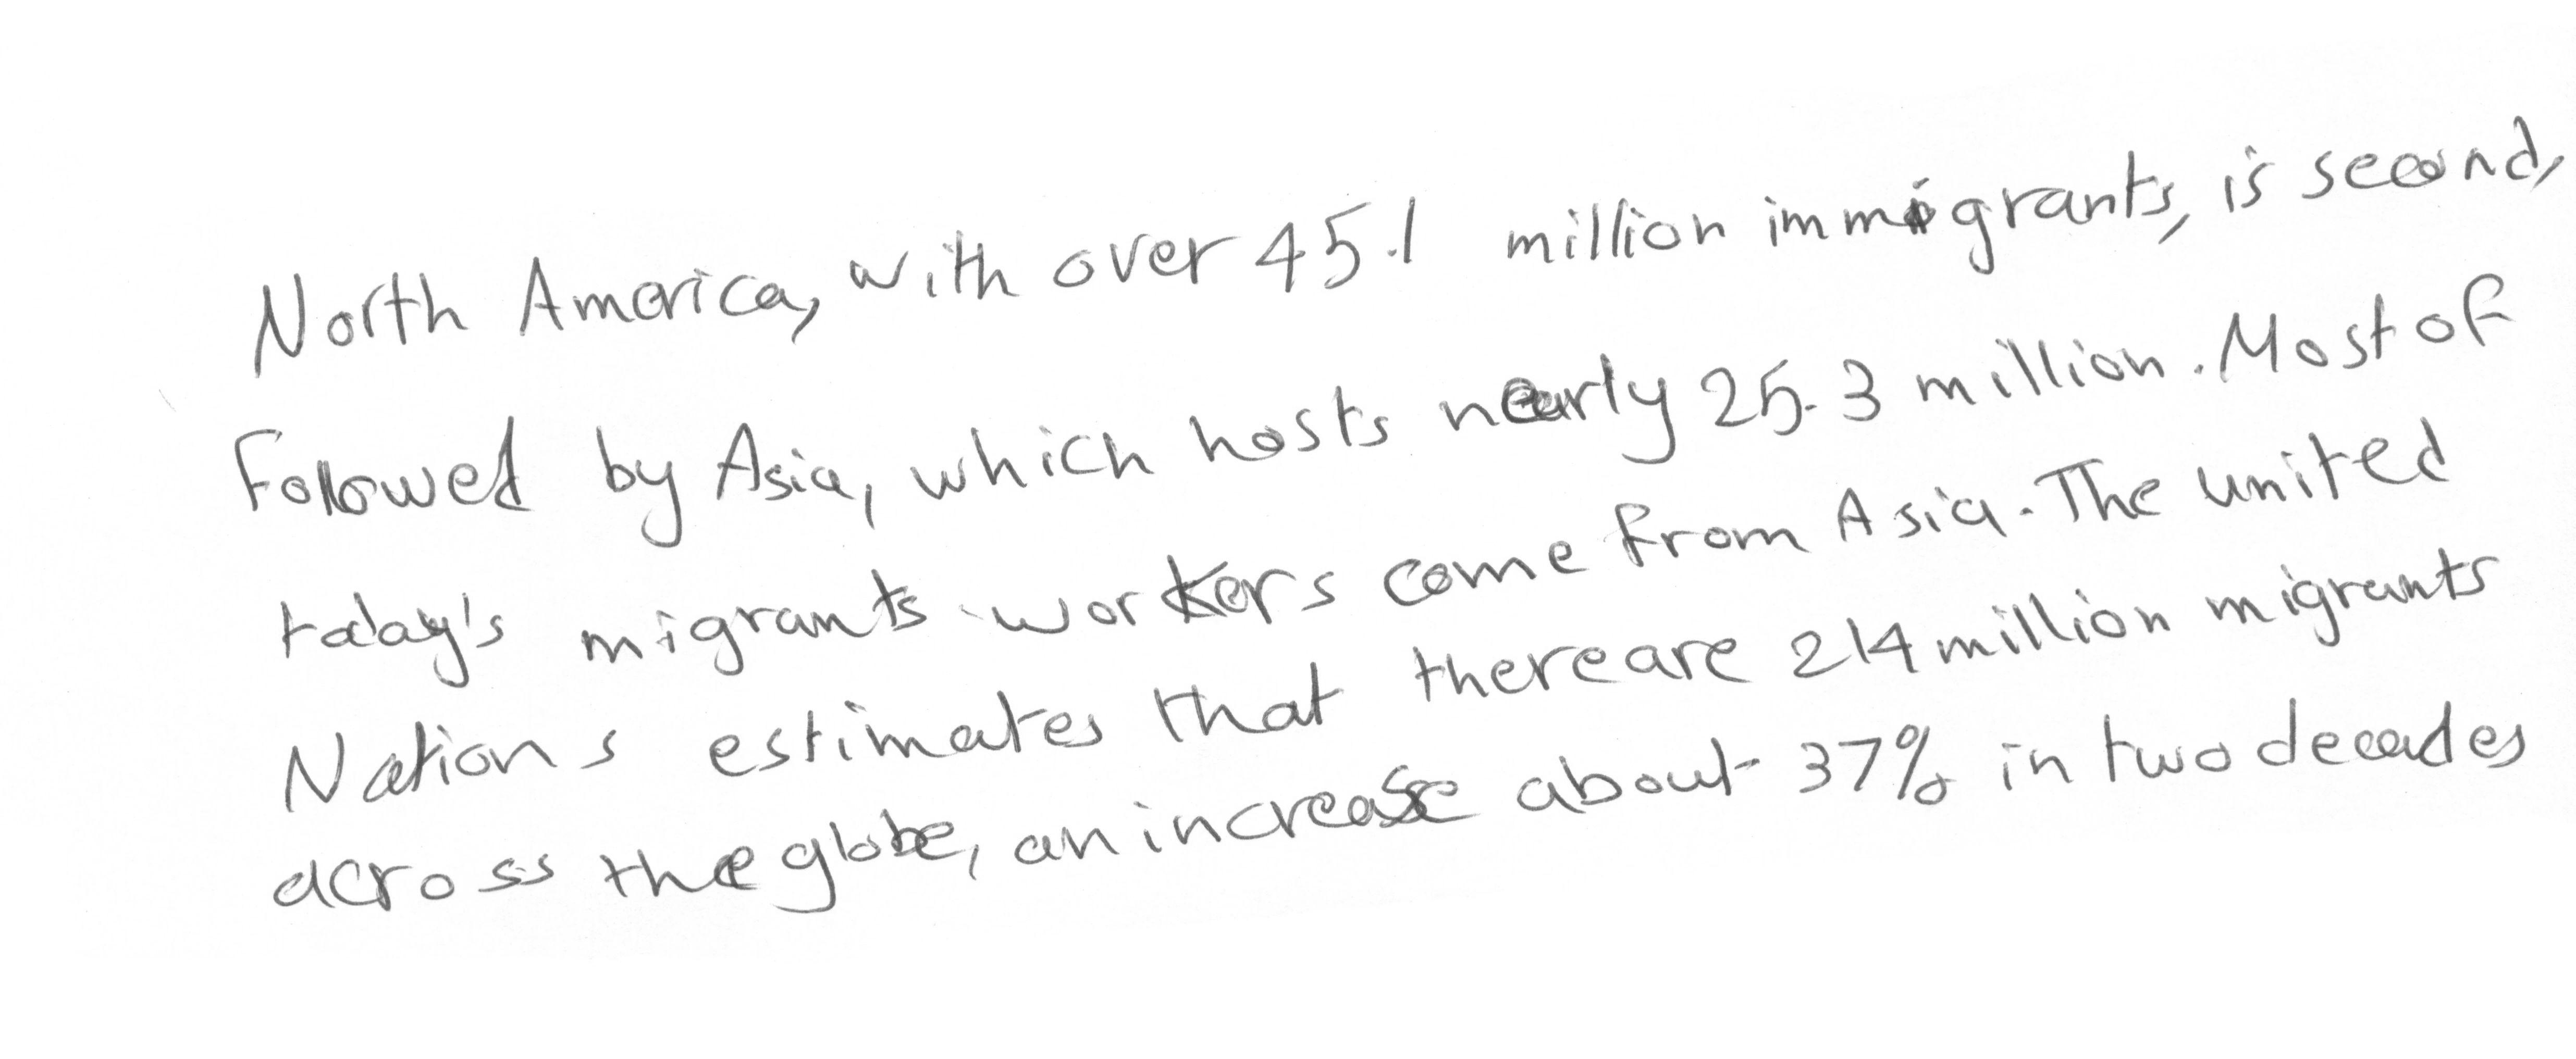 North America, with over 45.1 million immigrants, is second,
Followed by Asia, which hosts nearly 25.3 million. Most of
today's migrants workers come from Asia. The united
Nations estimates that there are 214 million migrants
across the globe, an increase about 37% in two decades